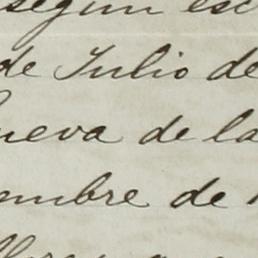 segun esc
de Julio de
ueva de la
embre de